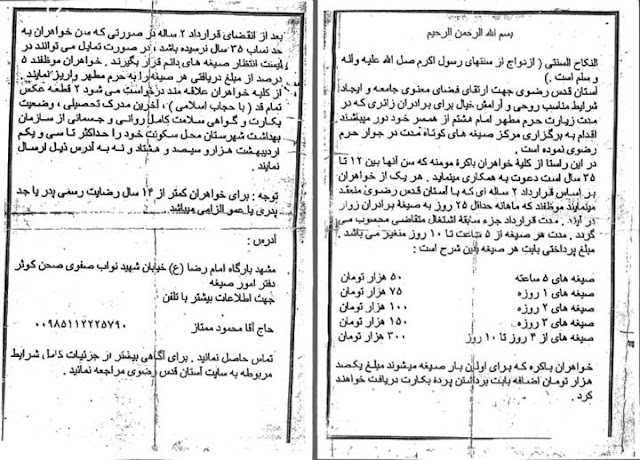 بسم الله الرحمن الرحیم
النکاح السنتی ( ازدواج از سنتهای رسول اکرم صل الله علیه وآله
و سلم است . )
آستان قدس رضوی جهت ارتقای فضای معنوی جامعه و ایجاد
شرایط مناسب روحی و آرامش خیال برای برادران زائری که در
مدت زیارت حرم مطهر امام هشتم از همسر خود دور میباشند
اقدام به برگزاری مرکز صیغه های کوتاه مدت در جوار حرم
رضوی نموده است .
در این راستا از کلیه خواهران باکره مومنه که سن آنها بین ۱۲ تا
۳۵ سال است دعوت به همکاری مینماید . هر یک از خواهران
بر اساس قرارداد ۲ ساله ای که با آستان قدس رضوی منعقد
مینمایند موظفند که ماهانه حداقل ۲۵ روز به صیغه برادران زوار
در آیند . مدت قرارداد جزء سابقه اشتغال متقاضی محسوب می
گردد . مدت هر صیغه از ۵ ساعت تا ۱۰ روز متغیر می باشد .
مبلغ پرداختی بابت هر صیغه بدین شرح است :
صیغه های ۵ ساعته ۵۰ هزار تومان
صیغه های ۱ روزه ۷۵ هزار تومان
صیغه های ۲ روزه ۱۰۰ هزار تومان
صیغه های ۳ روزه ۱۵۰ هزار تومان
صیغه های از ۴ روز تا ۱۰ روز ۳۰۰ هزار تومان
خواهران باکره که برای اولین بار صیغه میشوند مبلغ یکصد
هزار تومان اضافه بابت برداشتن پرده بکارت دریافت خواهند
کرد .
بعد از انقضای قرارداد ۲ ساله در صورتی که سن خواهران به
حد نساب ۳۵ سال نرسیده باشد ، در صورت تمایل می توانند در
لیست انتظار صیغه های دائم قرار بگیرند . خواهران موظفند ۵
درصد از مبلغ دریافتی هر صیغه را به حرم مطهر واریز نمایند .
از کلیه خواهران علاقه مند درخواست می شود ۲ قطعه عکس
تمام قد ( با حجاب اسلامی ) ، آخرین مدرک تحصیلی ، وضعیت
بکارت و گواهی سلامت کامل روانی و جسمانی از سازمان
بهداشت شهرستان محل سکونت خود را حداکثر تا سی و یکم
اردیبهشت هزارو سیصد و هشتاد و نه به آدرس ذیل ارسال
نمایند .
توجه : برای خواهران کمتر از ۱۴ سال رضایت رسمی پدر یا جد
پدری یا عمو الزامی میباشد
آدرس :
مشهد بارگاه امام رضا (ع) خیابان شهید نواب صفوی صحن کوثر
دفتر امور صیغه
جهت اطلاعات بیشتر با تلفن
حاج آقا محمود ممتاز
تماس حاصل نمائید . برای آگاهی بیشتر از جزئیات کامل شرایط
مربوطه به سایت آستان قدس رضوی مراجعه نمائید .